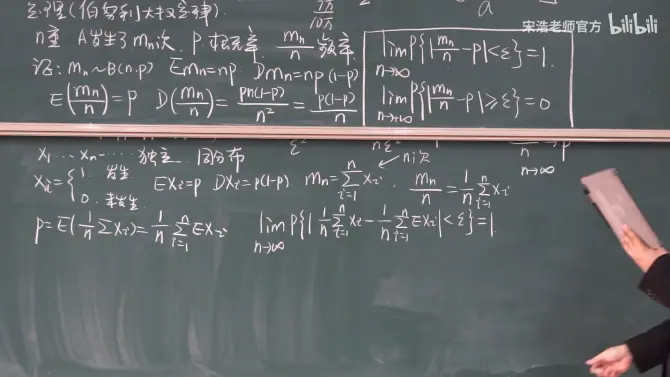 定理(伯努利大数定律).
n重 A发生了mn次. P.概率. mn/n 频率.
证: mn~B(n.p) Emn=np. Dmn=np(1-p)
E(mn/n)=p D(mn/n)=pn(1-p)/n²=p(1-p)/n
lim n→∞ P{|mn/n-p|<ε}=1.
lim n→∞ P{|mn/n-p|≥ε}=0
宋浩老师官方 bilibili
X1...Xn... 独立. 同分布
Xi={1. 发生 0. 未发生. EXi=p DXi=p(1-p). mn=∑i=1n Xi. mn/n=1/n∑i=1n Xi
p=E(1/n∑Xi)=1/n∑i=1n EXi lim n→∞ P{|1/n∑i=1n Xi-1/n∑i=1n EXi|<ε}=1